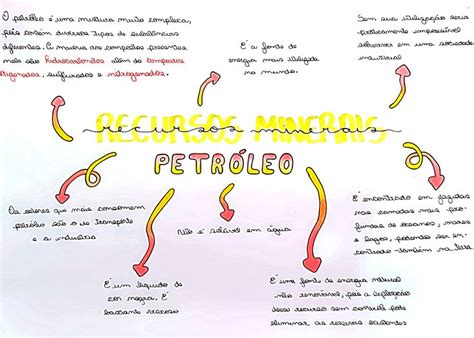 O petróleo é uma mistura muito complexa,
pois contém diversos tipos de substâncias
diferentes. A maioria dos compostos presentes
nele são Hidrocarbonetos além de compostos
oxigenados, sulfurados e nitrogenados.
É a fonte de
energia mais utilizada
no mundo.
Sem sua utilização seria
praticamente impossível
vivermos em uma sociedade
industrial
RECURSOS MINERAIS
recursos minerais
PETRÓLEO
Os setores que mais consomem
petróleo são o de transporte
e a indústria
Não é solúvel em água
É encontrado em jazidas
nas camadas mais pro-
fundas de oceanos, mares
e lagos, podendo ser en-
contrado também na terra
É um líquido de
cor negra. É
bastante viscoso
É uma fonte de energia natural
não renovável, pois a exploração
desse recurso sem controle pode
eliminar as reservas existentes